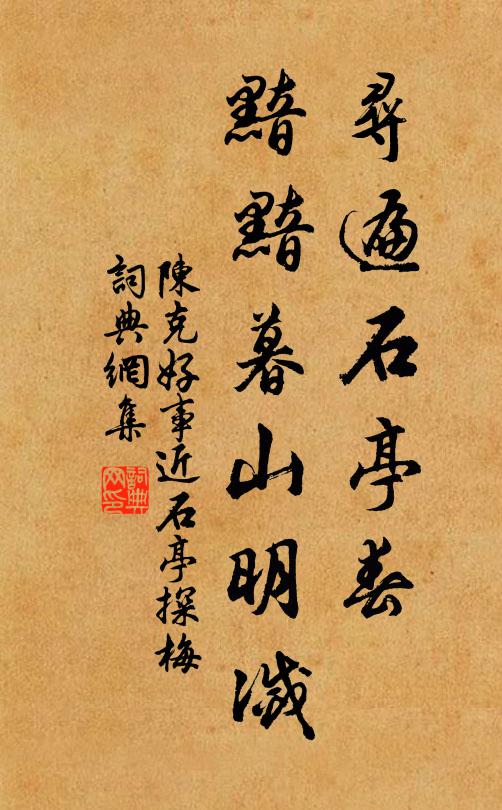 尋遍石亭春
黯黯暮山明滅
陳克好事近石亭探梅
詞典網集
詞典網印